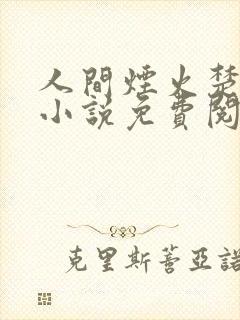 人間煙火楚
小說免費閱
克里斯蒂亞諾